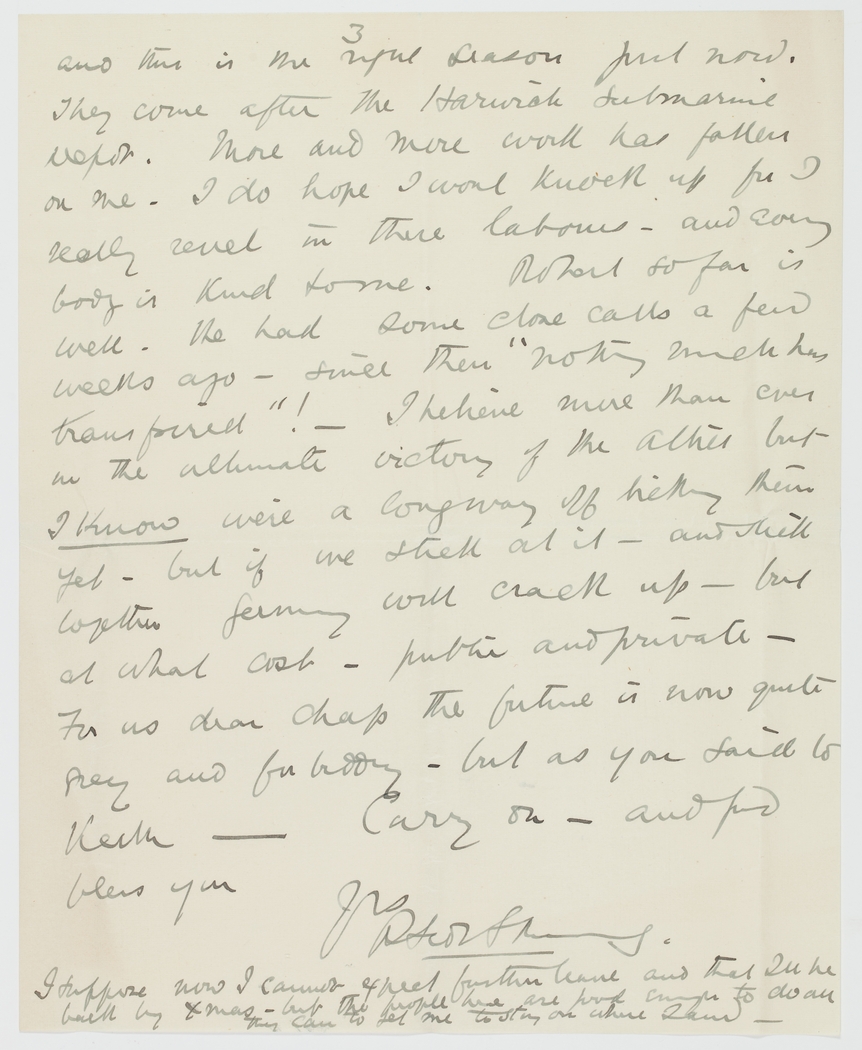 3
and this is the right season just now.
They come after the Harwich submarine
depot. More and more work has fallen
on me - I do hope I wont knock up for I
really revel in these labours - and every
body is kind to me. Robert so far is
well. He had some close calls a few
weeks ago - since then "nothing much has
transpired"! - I believe more than ever
in the ultimate victory of the allies but
I know were a long way off licking them
yet - but if we stick at it - and stick
together Germany will crack up - but
at what cost - public and private -
For us dear chap the future is now quite
grey and forbidding - but as you said to
Keith — Carry on - and god
bless you
I suppose now I cannot expect further leave and that I'll be
back by Xmas - but the people here are good enough to do all
they can to let me to stay on where I am -